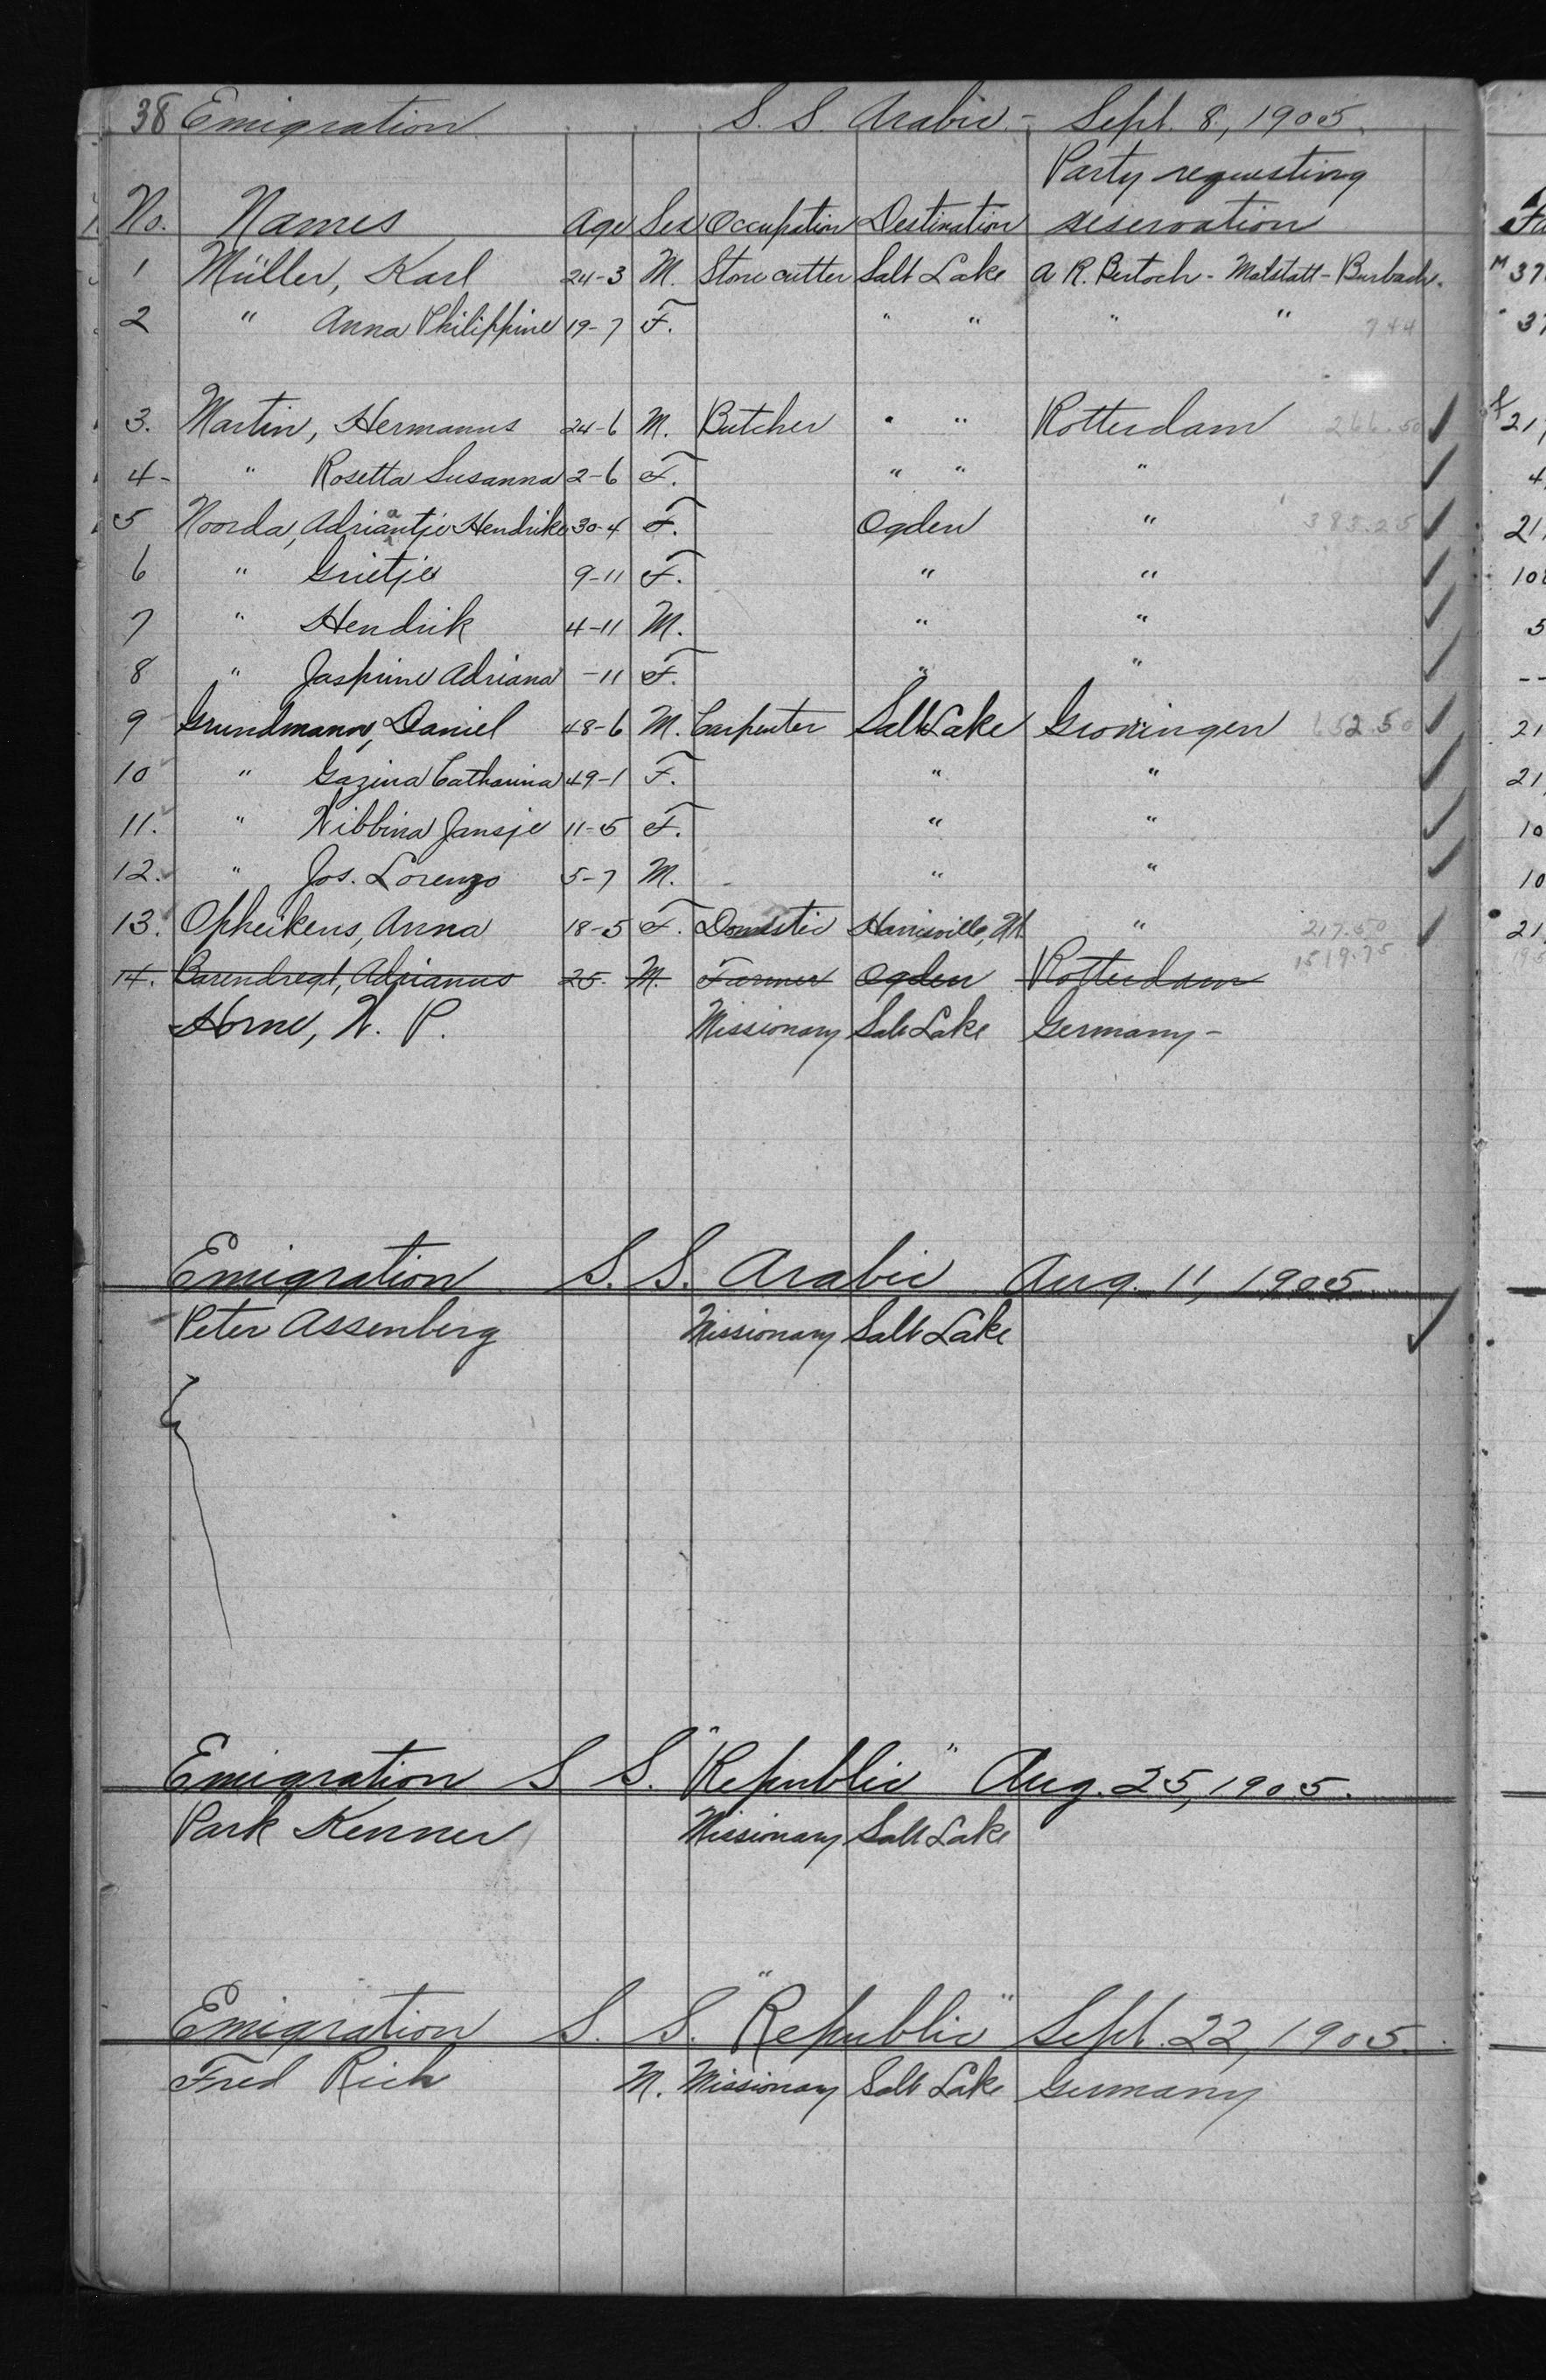 38 Emigration S. S. Arabic - Sept. 8, 1905.
Party requesting
No. Names Age Sex Occupation Destination reservation
1 Müller, Karl 24-3 M. Stone cutter Salt Lake A R. Bertoch - Malstatt - Burbach. M 37
2 " Anna Philippine 19-7 F. " " " " 744 " 37
3. Martin, Hermanus 24-6 M. Butcher " " Rotterdam 266.50 ✓ 21
4- " Rosetta Susanna 2-6 F. " " " ✓ 4
5 Noorda, Adriaantje Hendrika 30-4 F. Ogden " 383.25 ✓ 21
6 " Grietje 9-11 F. " " ✓ 10
7 " Hendrik 4-11 M. " " ✓ 5
8 " Jasprine Adriana -11 F. " " ✓ --
9 Grundmann, Daniel 48-6 M. Carpenter Salt Lake Groningen 652.50 ✓ 21
10 " Gazina Catharina 49-1 F. " " ✓ 21
11. " Wibbina Jansje 11-5 F. " " ✓ 10
12. " Jos. Lorenzo 5-7 M. " " ✓ 10
13. Opheikens, Anna 18-5 F. Domestic Harrisville, Ut. " 217.50 ✓ 21
1519.75
14. Barendregt, Adrianus 25. M. Farmer Ogden Rotterdam
Horne, W. P. Missionary Salt Lake Germany -
Emigration S. S. Arabic Aug. 11, 1905
Peter Assenberg Missionary Salt Lake ✓
Emigration S S. "Republic" Aug. 25, 1905.
Park Kenner Missionary Salt Lake
Emigration S. S. "Republic" Sept. 22, 1905.
Fred Rich M. Missionary Salt Lake Germany